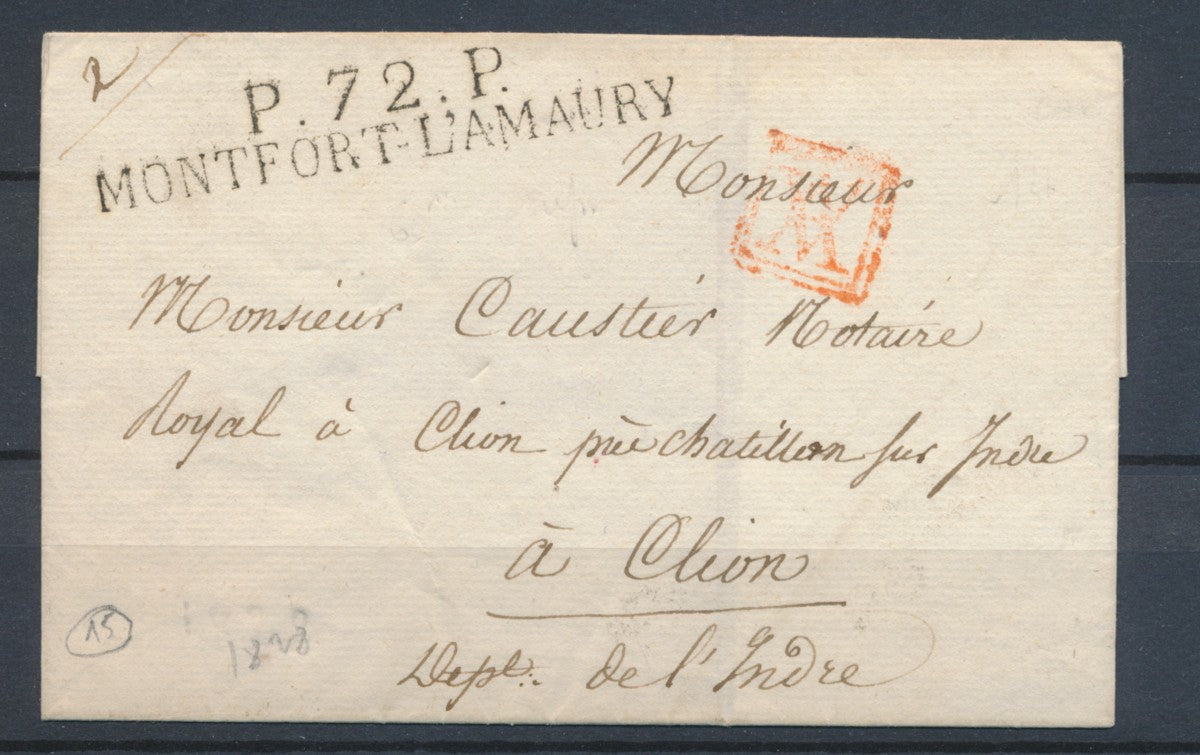 2
P.72.P.
MONTFORT-L'AMAURY
Monsieur
Monsieur Caustier Notaire
Royal à Clion près chatillon sur Indre
à Clion
Dept: de l'Indre
15
1828